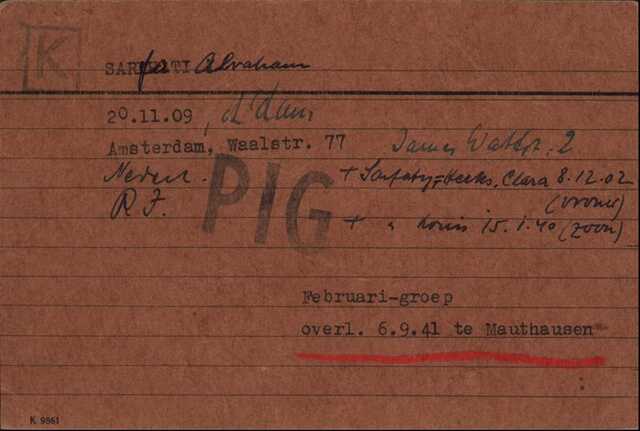 K
SARFATI Abraham
20.11.09, A'dam
Amsterdam, Waalstr. 77 James Wattstr. 2
Nederl. + Sarfaty=Beeks, Clara 8.12.02
R.J. (vrouw)
PIG
+ " Louis 15.1.40 (zoon)
Februari-groep
overl. 6.9.41 te Mauthausen
K 9861